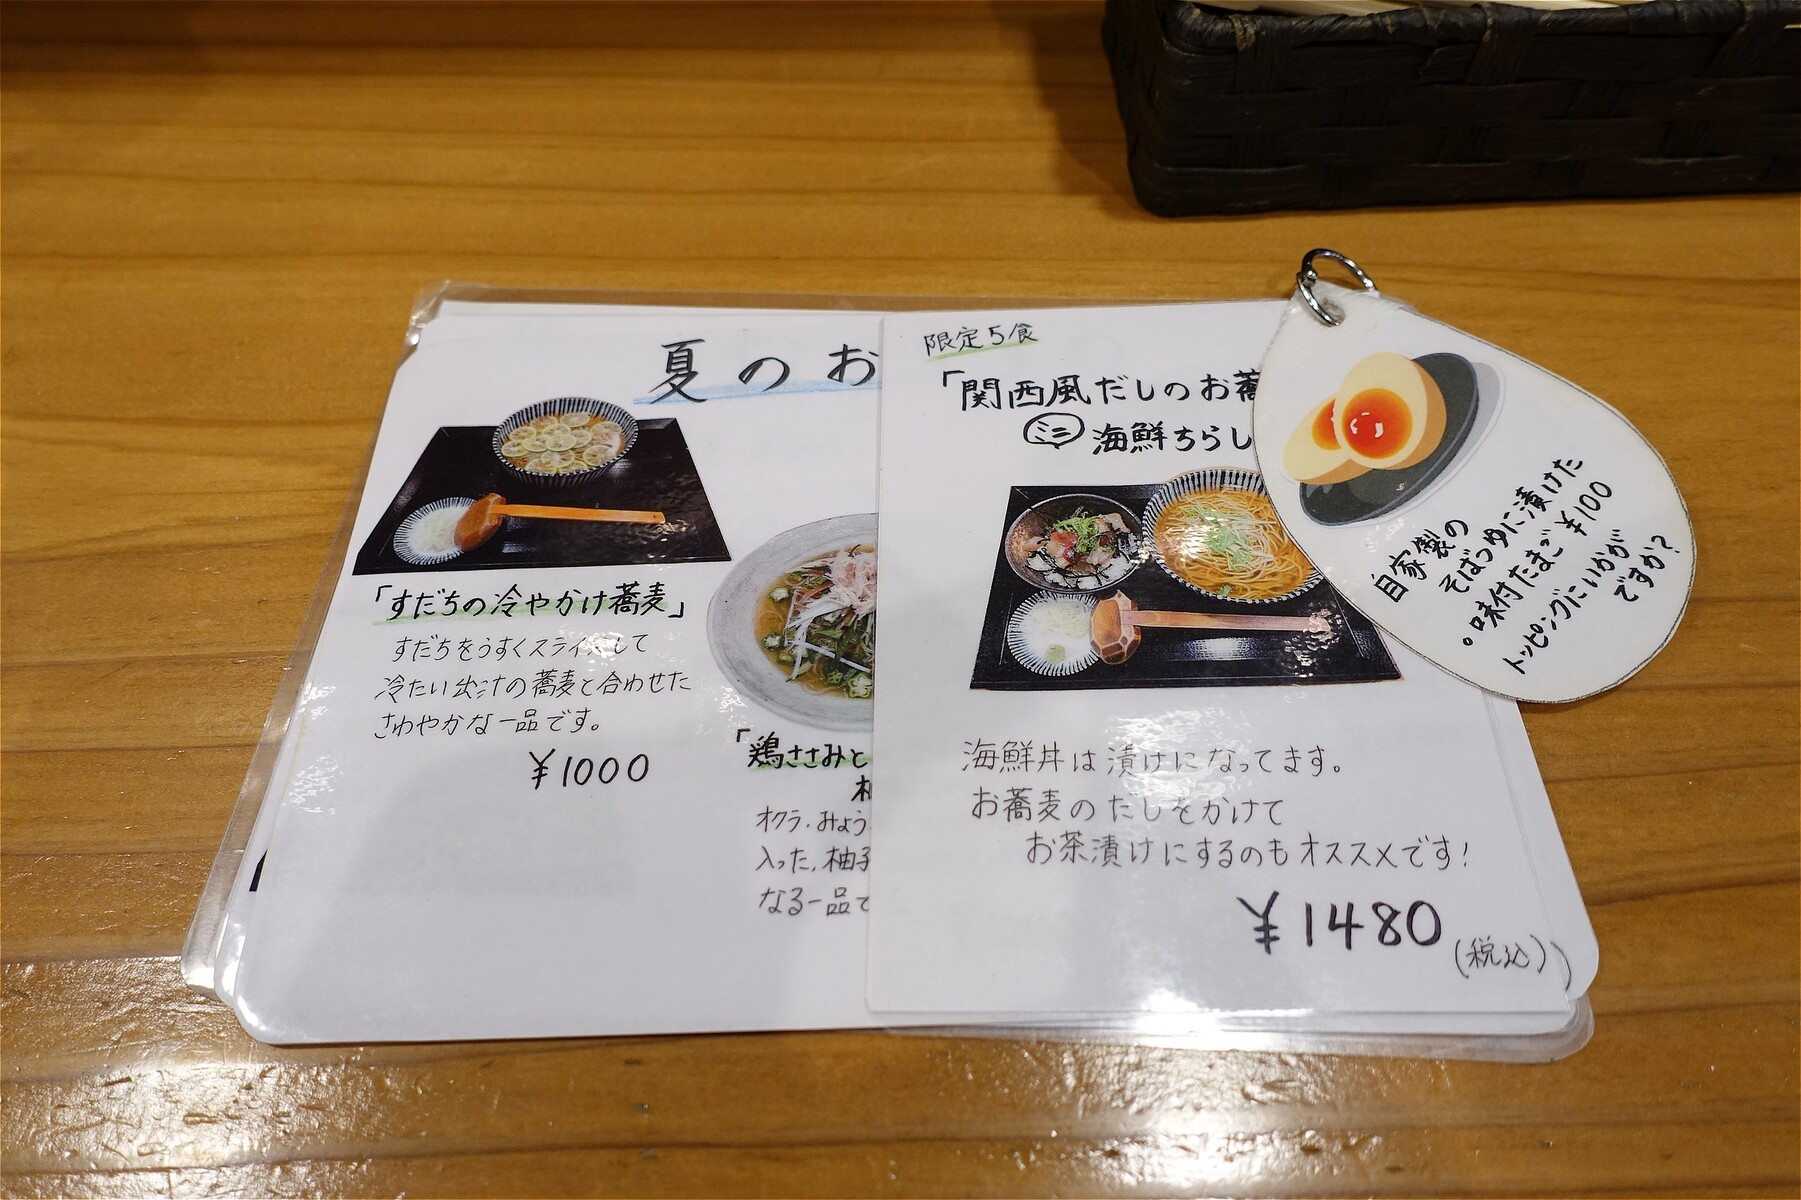 夏のお
「すだちの冷やかけ蕎麦」
すだちをうすくスライスして
冷たい出汁の蕎麦と合わせた
さわやかな一品です。
¥1000
「鶏ささみと
オクラ・みょう
入った、柚子
なる一品で
限定5食
「関西風だしのお蕎
ミニ 海鮮ちらし
海鮮丼は漬けになってます。
お蕎麦のだしをかけて
お茶漬けにするのもオススメです!
¥1480
(税込)
自家製の
そばつゆに漬けた
味付たまご ¥100
トッピングにいかが
ですか?